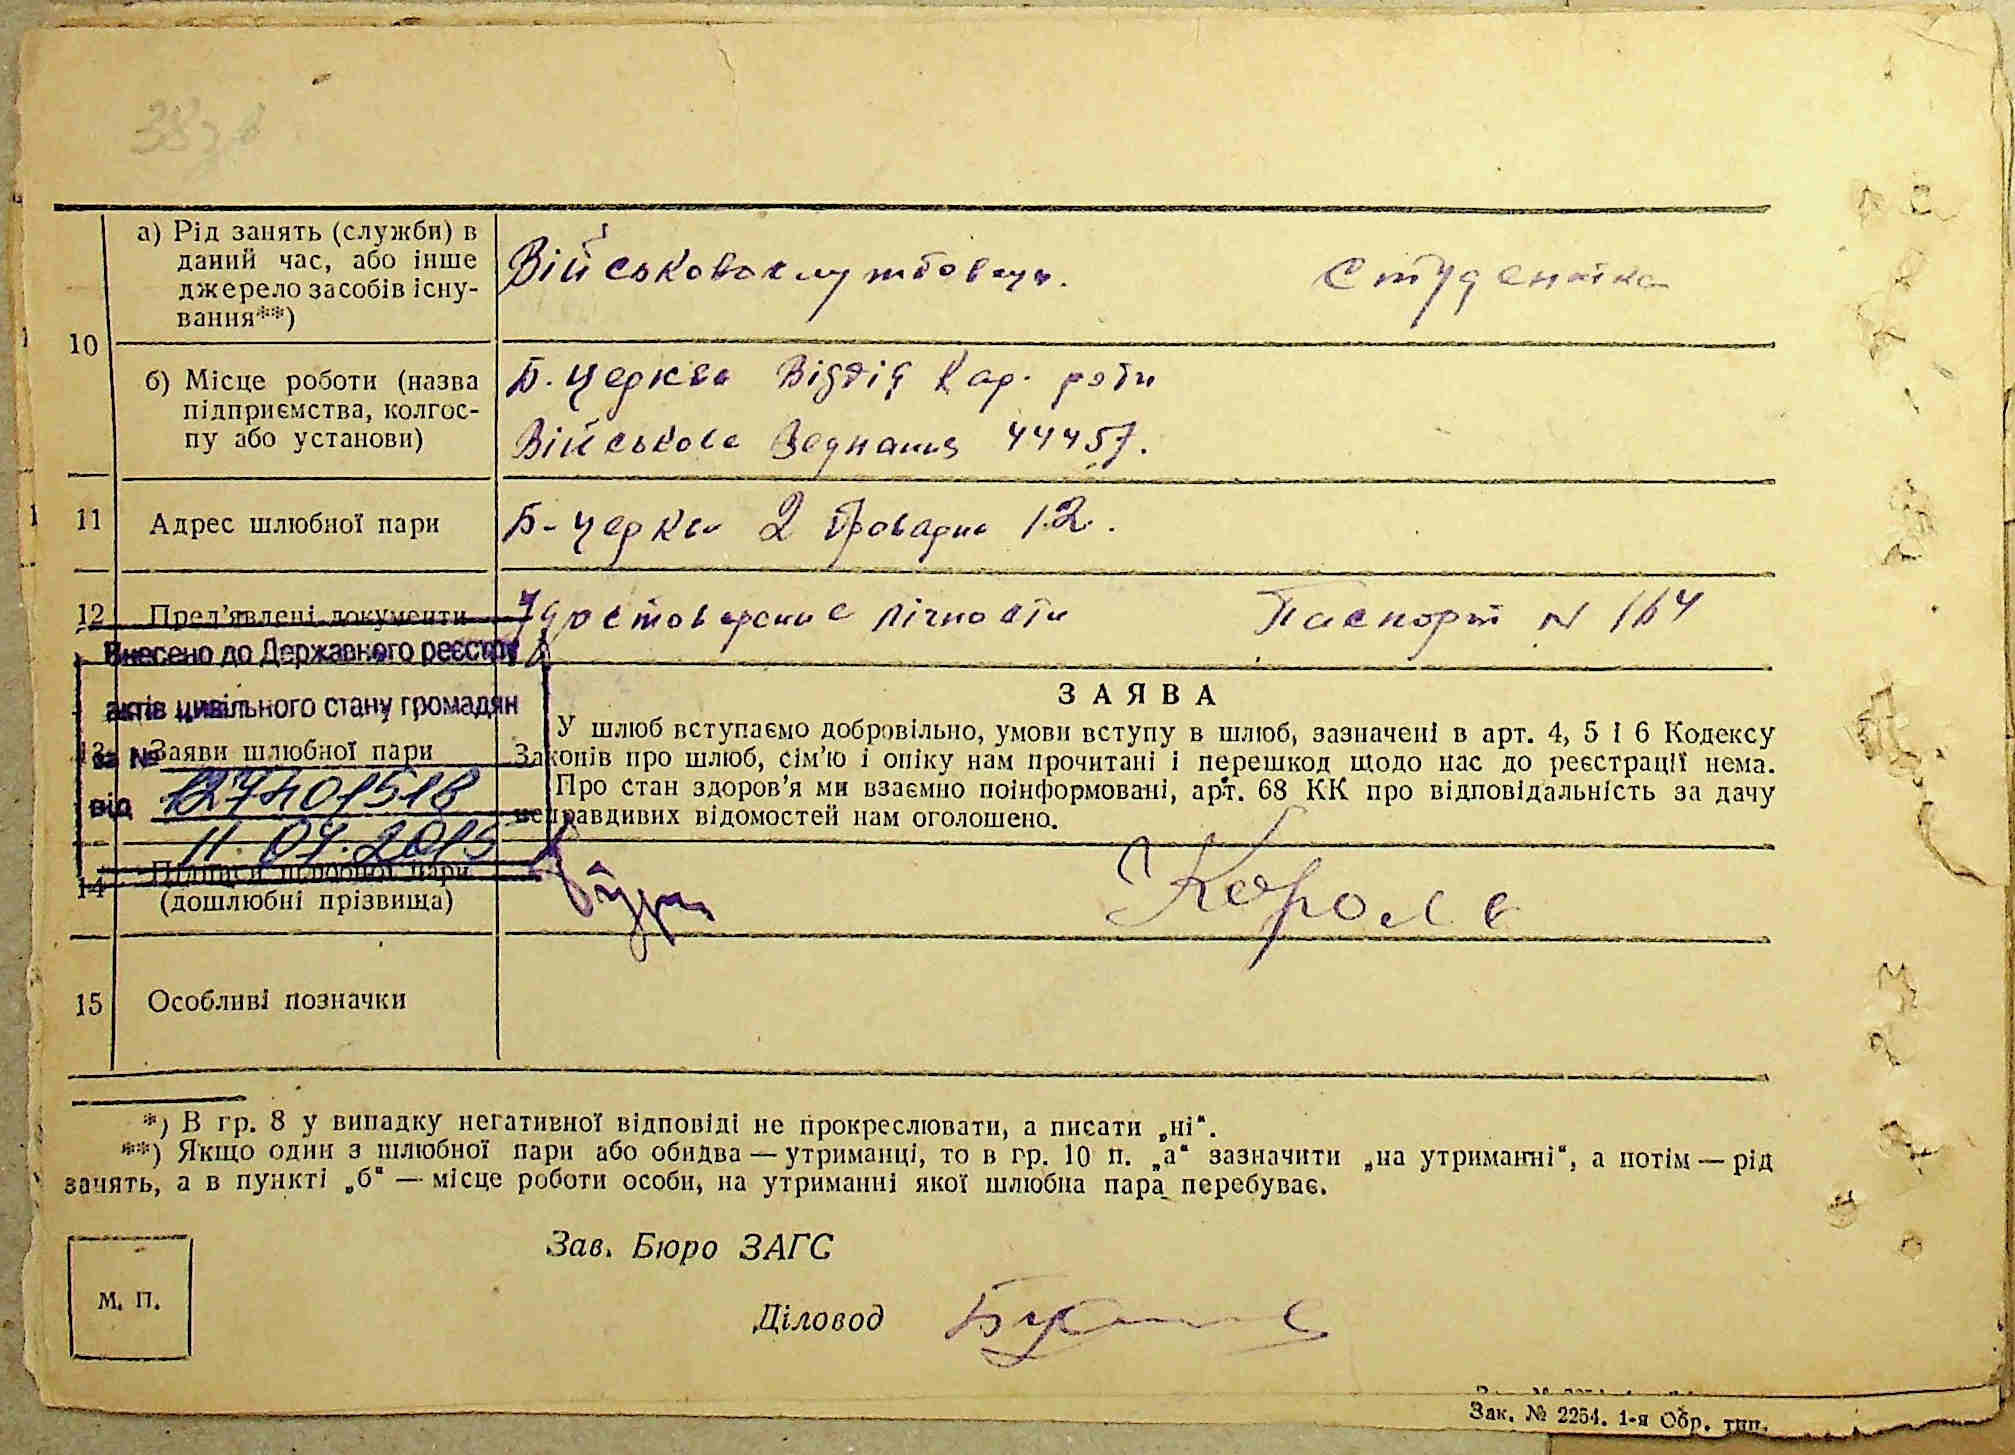 а) Рід занять (служби) в
даний час, або інше
джерело засобів існу-
вання**)
Військовослужбовець.
Студентка
10
б) Місце роботи (назва
підприємства, колгос-
пу або установи)
Б. Церква Відділ Кар. роти
Військове Зеднання 44457.
11
Адрес шлюбної пари
Б-Церква 2 12.
12
Пред'явлені документи
Удостоверение лічности
Паспорт N 164
Внесено до Державного реєстру
актів цивільного стану громадян
за №
127401518
від
11.07.2015
13
Заяви шлюбної пари
ЗАЯВА
У шлюб вступаємо добровільно, умови вступу в шлюб, зазначені в арт. 4, 5 і 6 Кодексу
Законів про шлюб, сім'ю і опіку нам прочитані і перешкод щодо нас до реєстрації нема.
Про стан здоров'я ми взаємно поінформовані, арт. 68 КК про відповідальність за дачу
неправдивих відомостей нам оголошено.
14
Підписи шлюбної пари
(дошлюбні прізвища)
Король
15
Особливі позначки
*) В гр. 8 у випадку негативної відповіді не прокреслювати, а писати „ні“.
**) Якщо один з шлюбної пари або обидва — утриманці, то в гр. 10 п. „а“ зазначити „на утриманні“, а потім — рід
занять, а в пункті „б“ — місце роботи особи, на утриманні якої шлюбна пара перебуває.
Зав. Бюро ЗАГС
М. П.
Діловод
Зак. № 2254. 1-я Обр. тип.